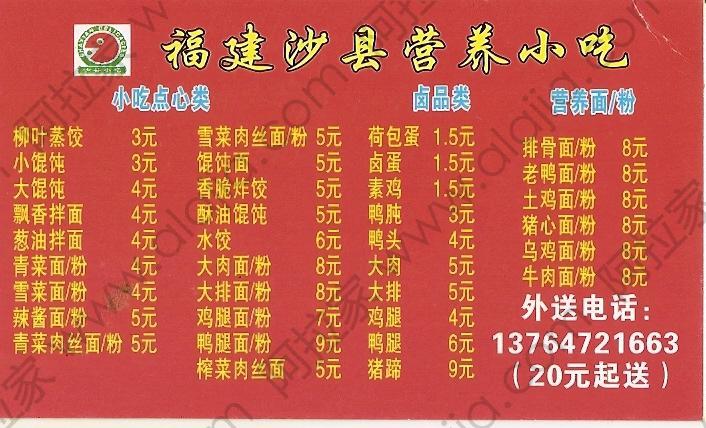 福建沙县营养小吃
小吃点心类
柳叶蒸饺 3元
小馄饨 3元
大馄饨 4元
飘香拌面 4元
葱油拌面 4元
青菜面/粉 4元
雪菜面/粉 4元
辣酱面/粉 5元
青菜肉丝面/粉 5元
雪菜肉丝面/粉 5元
馄饨面 5元
香脆炸饺 5元
酥油馄饨 5元
水饺 6元
大肉面/粉 8元
大排面/粉 8元
鸡腿面/粉 7元
鸭腿面/粉 9元
榨菜肉丝面 5元
卤品类
荷包蛋 1.5元
卤蛋 1.5元
素鸡 1.5元
鸭肫 3元
鸭头 4元
大肉 5元
大排 5元
鸡腿 4元
鸭腿 6元
猪蹄 9元
营养面/粉
排骨面/粉 8元
老鸭面/粉 8元
土鸡面/粉 8元
猪心面/粉 8元
乌鸡面/粉 8元
牛肉面/粉 8元
外送电话：
13764721663
（20元起送）
阿拉家 www.alajia.com